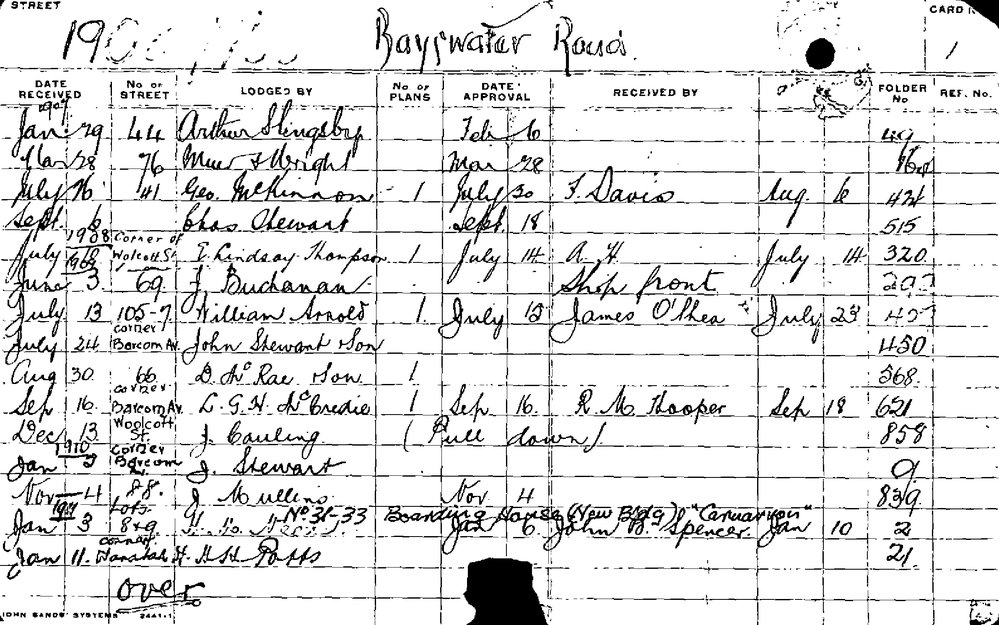 STREET
CARD
19 Bayswater Road. 1
DATE RECEIVED No OF STREET LODGED BY No OF PLANS DATE APPROVAL RECEIVED BY FOLDER No REF. No.
1907
Jan 29 44 Arthur Slingsby Feb 6 49
Mar 28 76 Muir & Wright Mar 28
July 26 41 Geo. McKinnon 1 July 30 F. Davis Aug. 6 424
Sept. 6 Chas Stewart Sept. 18 515
1908 Corner of
July Wolcott St. E. Lindsay Thompson 1 July 14 A. H. July 14 320
1909
June 3 69 J. Buchanan Shop front
July 13 105-7 William Arnold 1 July 15 James O'Shea July 23
corner
July 24 Barcom Av. John Stewart & Son 450
Aug 30 66 D. McRae & Son 1 568
corner
Sep 16. Barcom Av. L. G. H. McCredie 1 Sep 16. R. M. Hooper Sep 18 621
Woolcott
Dec 13 St. J. Cauling (Pull down) 858
1910 corner
Jan Barcom J. Stewart 9
Nov 4 88. J. Mullins Nov 4 839
1911 Lots No 31-33 Boarding House (New Bldg) "Canuaryon"
Jan 3 8&9 Jan 6 John B. Spencer. Jan 10 2
corner
Jan 11. H. H. Potts 21
over
JOHN SANDS' SYSTEMS